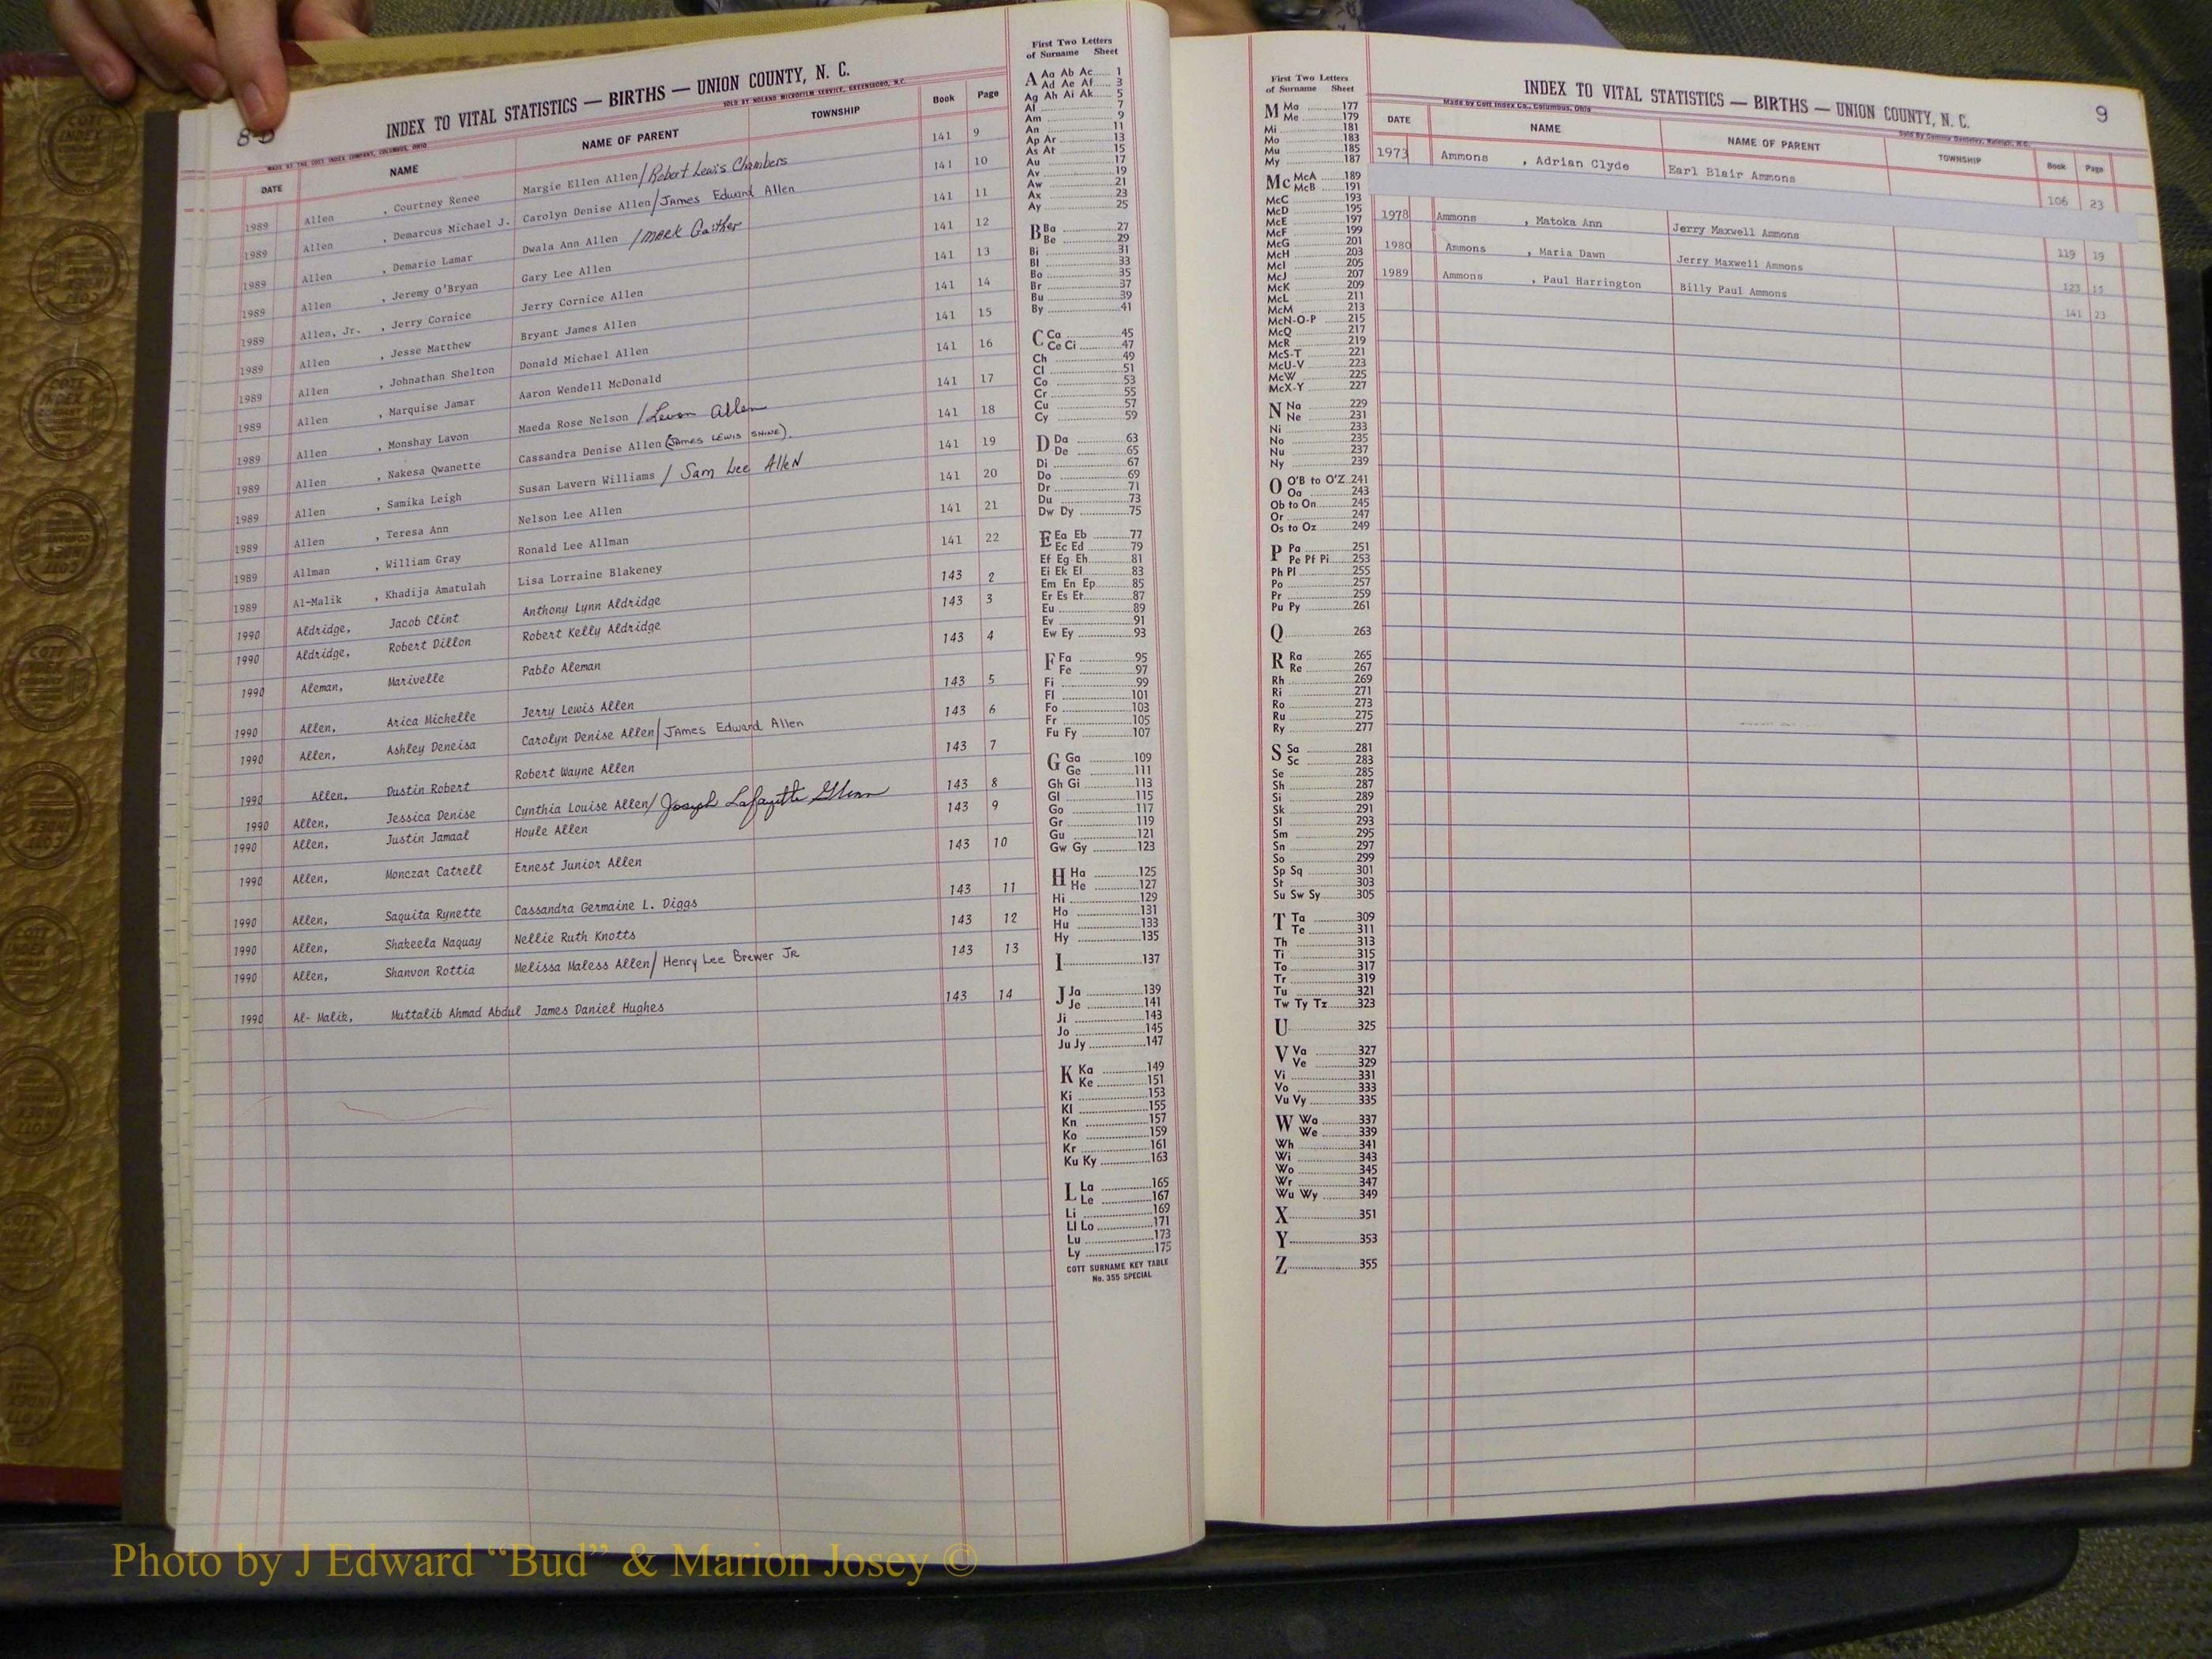 8-B
INDEX TO VITAL STATISTICS — BIRTHS — UNION COUNTY, N. C.
MADE BY THE COTT INDEX COMPANY, COLUMBUS, OHIO SOLD BY NOLAND MICROFILM SERVICE, GREENSBORO, N.C.
DATE NAME NAME OF PARENT TOWNSHIP Book Page
1989 Allen , Courtney Renee Margie Ellen Allen/Robert Lewis Chambers 141 9
1989 Allen , Demarcus Michael J. Carolyn Denise Allen/James Edward Allen 141 10
1989 Allen , Demario Lamar Dwala Ann Allen /MARK Gaither 141 11
1989 Allen , Jeremy O'Bryan Gary Lee Allen 141 12
1989 Allen, Jr. , Jerry Cornice Jerry Cornice Allen 141 13
1989 Allen , Jesse Matthew Bryant James Allen 141 14
1989 Allen , Johnathan Shelton Donald Michael Allen 141 15
1989 Allen , Marquise Jamar Aaron Wendell McDonald 141 16
1989 Allen , Monshay Lavon Maeda Rose Nelson /Levon Allen 141 17
1989 Allen , Nakesa Qwanette Cassandra Denise Allen (JAMES LEWIS SHINE). 141 18
1989 Allen , Samika Leigh Susan Lavern Williams / Sam Lee Allen 141 19
1989 Allen , Teresa Ann Nelson Lee Allen 141 20
1989 Allman , William Gray Ronald Lee Allman 141 21
1989 Al-Malik , Khadija Amatulah Lisa Lorraine Blakeney 141 22
1990 Aldridge, Jacob Clint Anthony Lynn Aldridge 143 2
1990 Aldridge, Robert Dillon Robert Kelly Aldridge 143 3
1990 Aleman, Marivelle Pablo Aleman 143 4
1990 Allen, Arica Michelle Jerry Lewis Allen 143 5
1990 Allen, Ashley Deneisa Carolyn Denise Allen/James Edward Allen 143 6
1990 Allen, Dustin Robert Robert Wayne Allen 143 7
1990 Allen, Jessica Denise Cynthia Louise Allen/Joseph Lafayette Glenn 143 8
1990 Allen, Justin Jamaal Houle Allen 143 9
1990 Allen, Monczar Catrell Ernest Junior Allen 143 10
1990 Allen, Saquita Rynette Cassandra Germaine L. Diggs 143 11
1990 Allen, Shakeela Naquay Nellie Ruth Knotts 143 12
1990 Allen, Shanvon Rottia Melissa Maless Allen/Henry Lee Brewer JR 143 13
1990 Al-Malik, Muttalib Ahmad Abdul James Daniel Hughes 143 14
First Two Letters
of Surname Sheet
A Aa Ab Ac 1
Ad Ae Af 3
Ag Ah Ai Ak 5
Al 7
Am 9
An 11
Ap Ar 13
As At 15
Au 17
Av 19
Aw 21
Ax 23
Ay 25
B Ba 27
Be 29
Bi 31
Bl 33
Bo 35
Br 37
Bu 39
By 41
C Ca 45
Ce Ci 47
Ch 49
Cl 51
Co 53
Cr 55
Cu 57
Cy 59
D Da 63
De 65
Di 67
Do 69
Dr 71
Du 73
Dw Dy 75
E Ea Eb 77
Ec Ed 79
Ef Eg Eh 81
Ei Ek El 83
Em En Ep 85
Er Es Et 87
Eu 89
Ev 91
Ew Ey 93
F Fa 95
Fe 97
Fi 99
Fl 101
Fo 103
Fr 105
Fu Fy 107
G Ga 109
Ge 111
Gh Gi 113
Gl 115
Go 117
Gr 119
Gu 121
Gw Gy 123
H Ha 125
He 127
Hi 129
Ho 131
Hu 133
Hy 135
I 137
J Ja 139
Je 141
Ji 143
Jo 145
Ju Jy 147
K Ka 149
Ke 151
Ki 153
Kl 155
Kn 157
Ko 159
Kr 161
Ku Ky 163
L La 165
Le 167
Li 169
Ll Lo 171
Lu 173
Ly 175
COTT SURNAME KEY TABLE
No. 355 SPECIAL
First Two Letters
of Surname Sheet
M Ma 177
Me 179
Mi 181
Mo 183
Mu 185
My 187
Mc McA 189
McB 191
McC 193
McD 195
McE 197
McF 199
McG 201
McH 203
McI 205
McJ 207
McK 209
McL 211
McM 213
McN-O-P 215
McQ 217
McR 219
McS-T 221
McU-V 223
McW 225
McX-Y 227
N Na 229
Ne 231
Ni 233
No 235
Nu 237
Ny 239
O O'B to O'Z 241
Oa 243
Ob to On 245
Or 247
Os to Oz 249
P Pa 251
Pe Pf Pi 253
Ph Pl 255
Po 257
Pr 259
Pu Py 261
Q 263
R Ra 265
Re 267
Rh 269
Ri 271
Ro 273
Ru 275
Ry 277
S Sa 281
Sc 283
Se 285
Sh 287
Si 289
Sk 291
Sl 293
Sm 295
Sn 297
So 299
Sp Sq 301
St 303
Su Sw Sy 305
T Ta 309
Te 311
Th 313
Ti 315
To 317
Tr 319
Tu 321
Tw Ty Tz 323
U 325
V Va 327
Ve 329
Vi 331
Vo 333
Vu Vy 335
W Wa 337
We 339
Wh 341
Wi 343
Wo 345
Wr 347
Wu Wy 349
X 351
Y 353
Z 355
INDEX TO VITAL STATISTICS — BIRTHS — UNION COUNTY, N. C. 9
Made by Cott Index Co., Columbus, Ohio
DATE NAME NAME OF PARENT TOWNSHIP Book Page
1973 Ammons , Adrian Clyde Earl Blair Ammons 106 23
1978 Ammons , Matoka Ann Jerry Maxwell Ammons 119 19
1980 Ammons , Maria Dawn Jerry Maxwell Ammons 123 15
1989 Ammons , Paul Harrington Billy Paul Ammons 141 23
Photo by J Edward “Bud” & Marion Josey ©